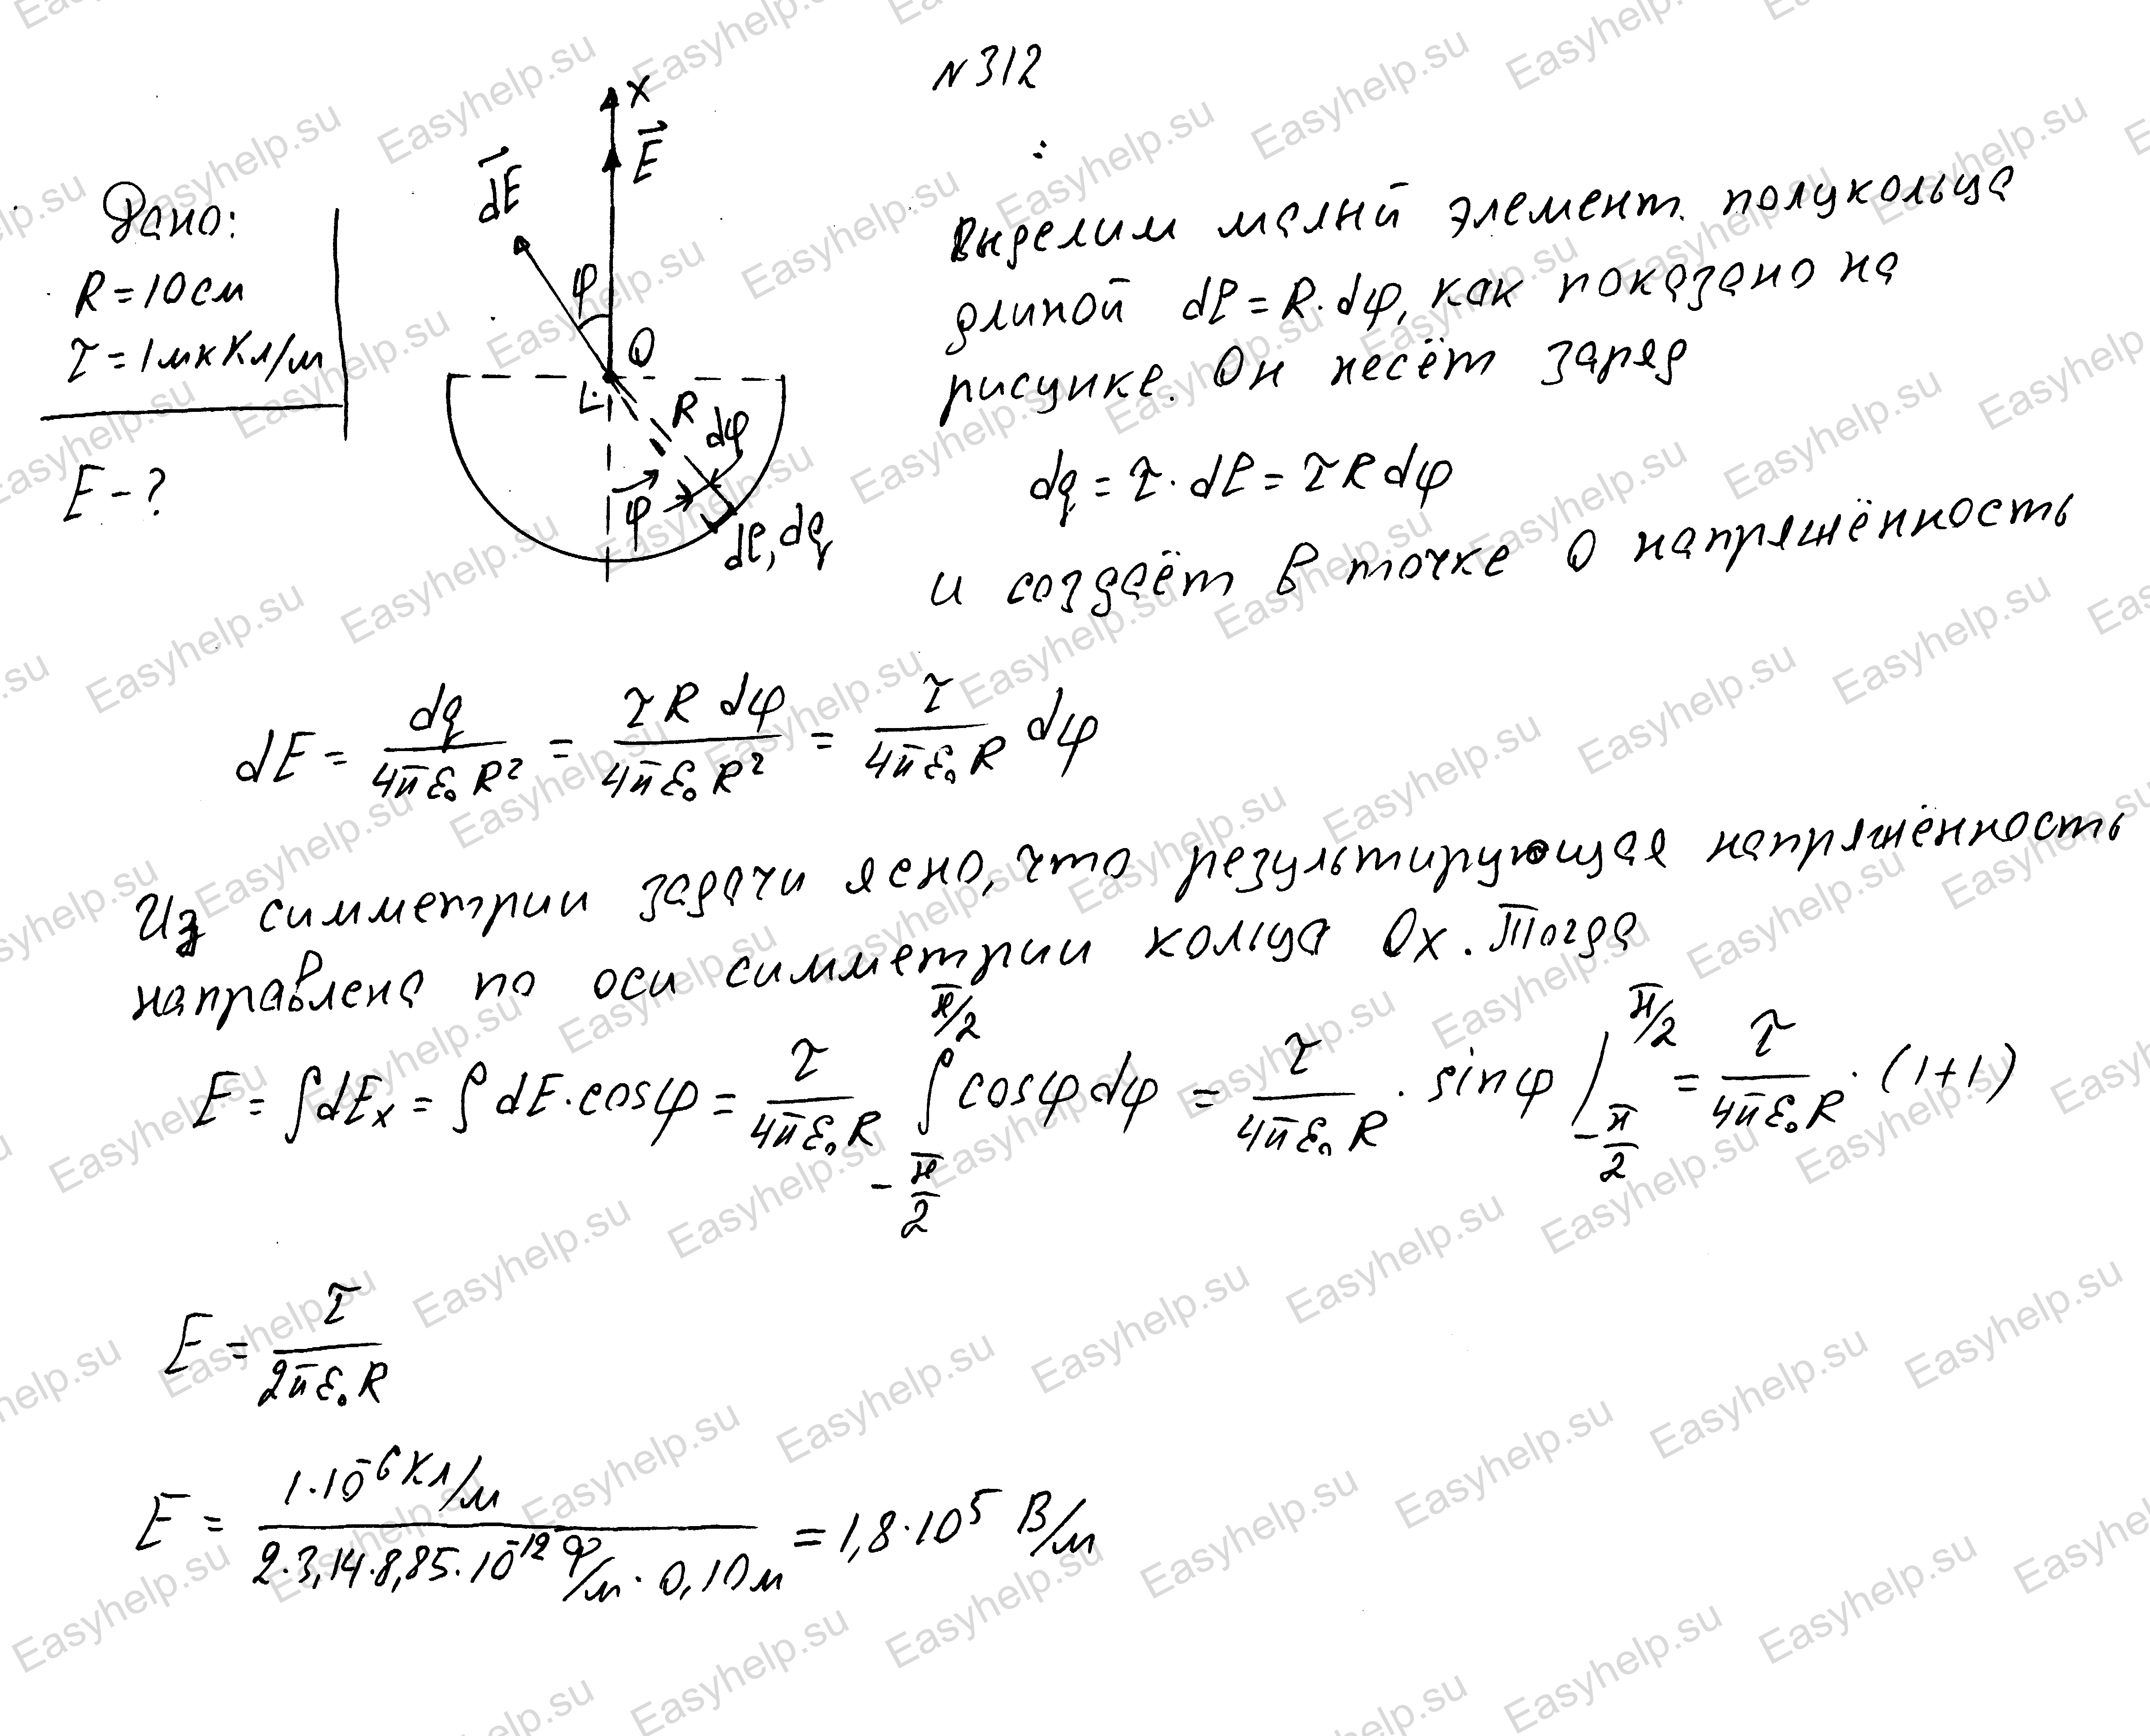 N 312
Дано:
R = 10 см
τ = 1 мкКл/м
E - ?
x
E
dE
φ
O
R
dφ
φ
dl, dq
Выделим малый элемент полукольца
длиной dl = R·dφ, как показано на
рисунке. Он несёт заряд
dq = τ·dl = τR dφ
и создаёт в точке O напряжённость
dE = dq/(4πε₀R²) = τR dφ/(4πε₀R²) = τ/(4πε₀R) dφ
Из симметрии задачи ясно, что результирующая напряжённость
направлена по оси симметрии кольца Ox. Тогда
E = ∫dEx = ∫dE·cosφ = τ/(4πε₀R) ∫_{-π/2}^{π/2} cosφ dφ = τ/(4πε₀R) · sinφ |_{-π/2}^{π/2} = τ/(4πε₀R) · (1+1)
E = τ/(2πε₀R)
E = 1·10⁻⁶ Кл/м / (2·3,14·8,85·10⁻¹² Ф/м · 0,10 м) = 1,8·10⁵ В/м
Easyhelp.su